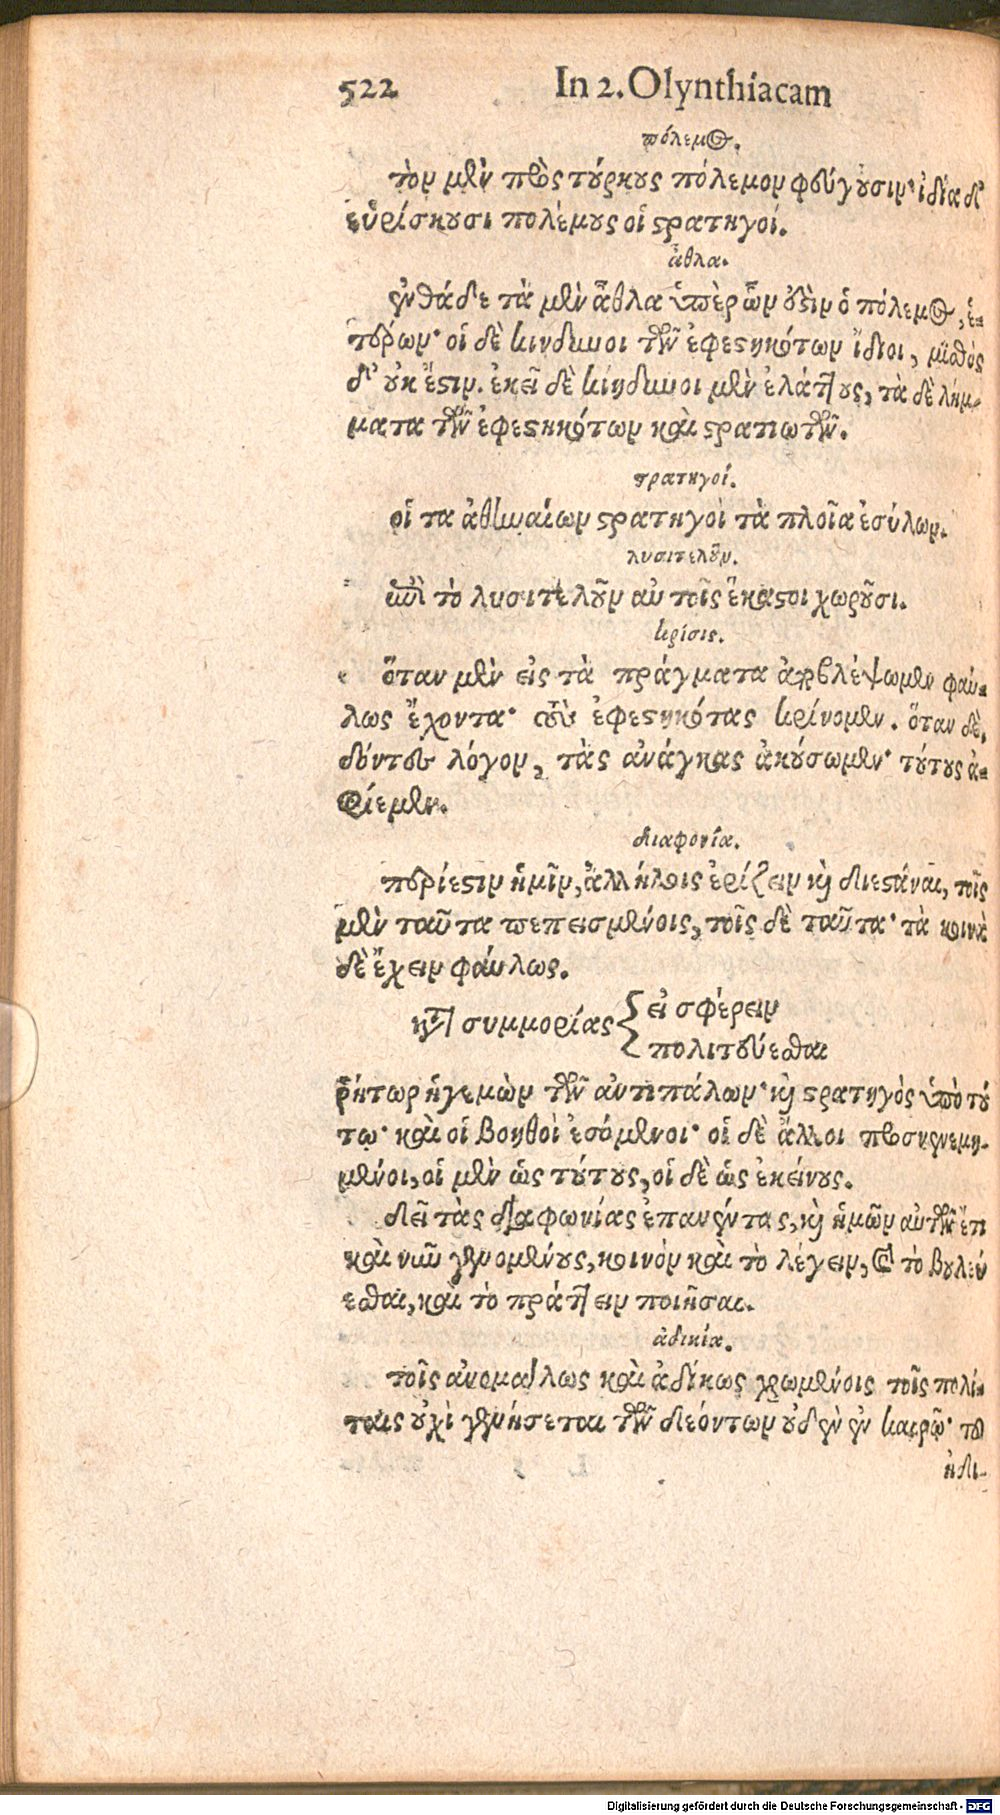 522 In 2. Olynthiacam
πόλεμος.
τὸν μὲν πρὸς τύρκους πόλεμον φεύγουσιν· ἰδία δ'
εὑρίσκουσι πολέμους οἱ στρατηγοί.
ἆθλα.
ἐνθάδε τὰ μὲν ἆθλα ὑπὲρ ὧν ἐστὶν ὁ πόλεμος, ἑ-
τέρων· οἱ δὲ κίνδυνοι τῶν ἐφεστηκότων ἴδιοι, μισθὸς
δ' οὐκ ἔστιν. ἐκεῖ δὲ κίνδυνοι μὲν ἐλάττους, τὰ δὲ λήμ-
ματα τῶν ἐφεστηκότων καὶ στρατιωτῶν.
στρατηγοί.
οἵ τα ἀθηναίων στρατηγοὶ τὰ πλοῖα ἐσύλων.
λυσιτελοῦν.
ἐπὶ τὸ λυσιτελοῦν αὐτοῖς ἕκαστοι χωροῦσι.
κρίσις.
ὅταν μὲν εἰς τὰ πράγματα ἀποβλέψωμεν φαύ-
λως ἔχοντα· τοὺς ἐφεστηκότας κρίνομεν. ὅταν δὲ,
δόντες λόγον, τὰς ἀνάγκας ἀκούσωμεν· τούτους ἀ-
φίεμεν.
διαφονία.
περίεστιν ἡμῖν, ἀλλήλοις ἐρίζειν καὶ διεστάναι, τοῖς
μὲν ταῦτα πεπεισμένοις, τοῖς δὲ ταῦτα· τὰ κοινὰ
δὲ ἔχειν φαύλως.
κατὰ συμμορίας { εἰσφέρειν
πολιτεύεσθαι
ῥήτωρ ἡγεμὼν τῶν ἀντιπάλων· καὶ στρατηγὸς ὑπὸ τού
τῳ· καὶ οἱ βοηθοὶ ἐσόμενοι· οἱ δὲ ἄλλοι προσνενεμη-
μένοι, οἱ μὲν ὡς τούτους, οἱ δὲ ὡς ἐκείνους.
δεῖ τὰς διαφωνίας ἐπανέντας, καὶ ἡμῶν αὐτῶν ἔτι
καὶ νῦν γενομένους, κοινὸν καὶ τὸ λέγειν, καὶ τὸ βουλεύ
εσθαι, καὶ τὸ πράττειν ποιῆσαι.
ἀδικία.
τοῖς ἀνομάλως καὶ ἀδίκως χρωμένοις τοῖς πολί-
ταις οὐχὶ γενήσεται τῶν δεόντων οὐδὲν ἐν καιρῷ· τὸ
ἠδι-
Digitalisierung gefördert durch die Deutsche Forschungsgemeinschaft - DFG